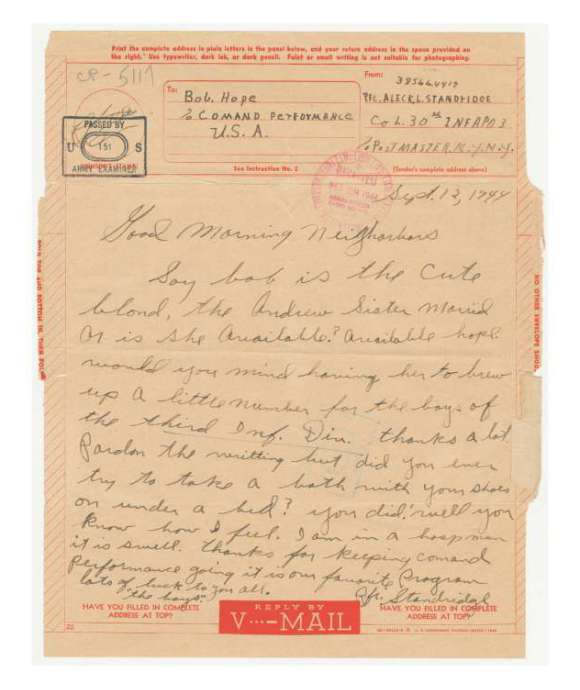 Print the complete address in plain letters in the panel below, and your return address in the space provided on
the right. Use typewriter, dark ink, or dark pencil. Faint or small writing is not suitable for photographing.
To:
Bob. Hope
% COMAND PERFORMANCE
U.S.A.
From:
Pfc. ALECK L. STANDRIDGE
Co L. 30th INF APO 3
% POSTMASTER, N.Y. N.Y.
PASSED BY
U 151 S
ARMY EXAMINER
See Instruction No. 2
(Sender's complete address above)
Sept. 12, 1944
Good Morning Neighorbors
Say bob is the cute
blond, the Andrew Sister Maried
or is she Available? Available hope
would you mind having her to brew
up a little number for the boys of
the third Inf. Div. thanks a lot
Pardon the writting but did you ever
try to take a bath with your shoes
on under a bed? you did. well you
know how I feel. I am in a hosp man
it is swell. thanks for keeping comand
Performance going it is our favorite Program
lots of luck to you all.
"the boys"
Pfc. Standridge
HAVE YOU FILLED IN COMPLETE
ADDRESS AT TOP?
REPLY BY
V···—MAIL
HAVE YOU FILLED IN COMPLETE
ADDRESS AT TOP?